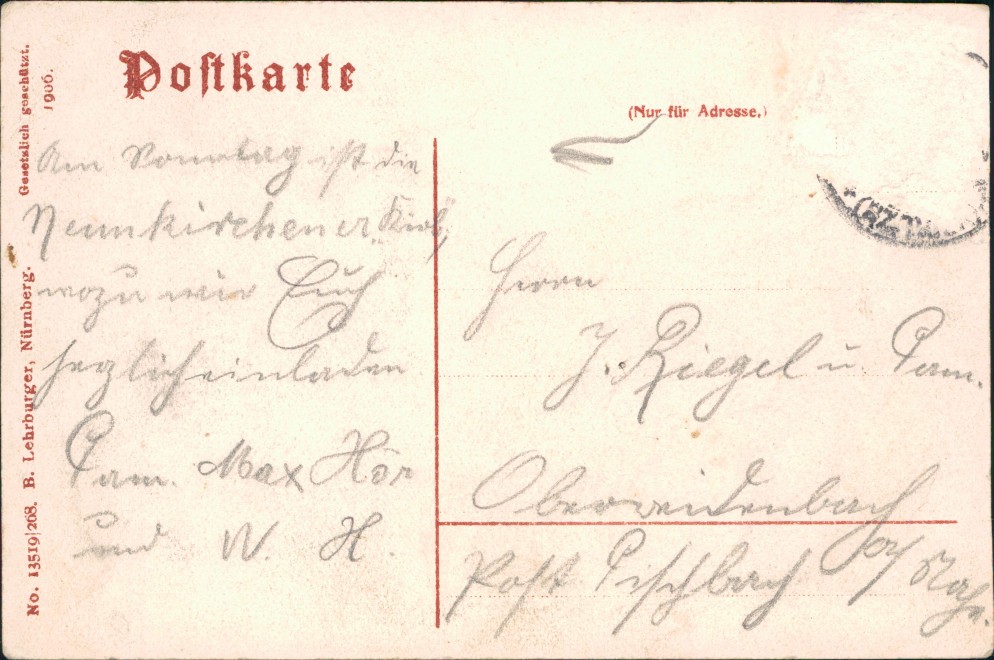 Postkarte
(Nur für Adresse.)
Gesetzlich geschützt.
1906.
No. 13519/268. B. Lehrburger, Nürnberg.
Am Sonntag ist die
Neunkirchener „Kirb“,
wozu wir Euch
herzlich einladen
Fam. Max Hör
und W. H.
Herrn
J. Riegel u. Fam.
Oberreidenbach
Post Fischbach a/ Nahe.